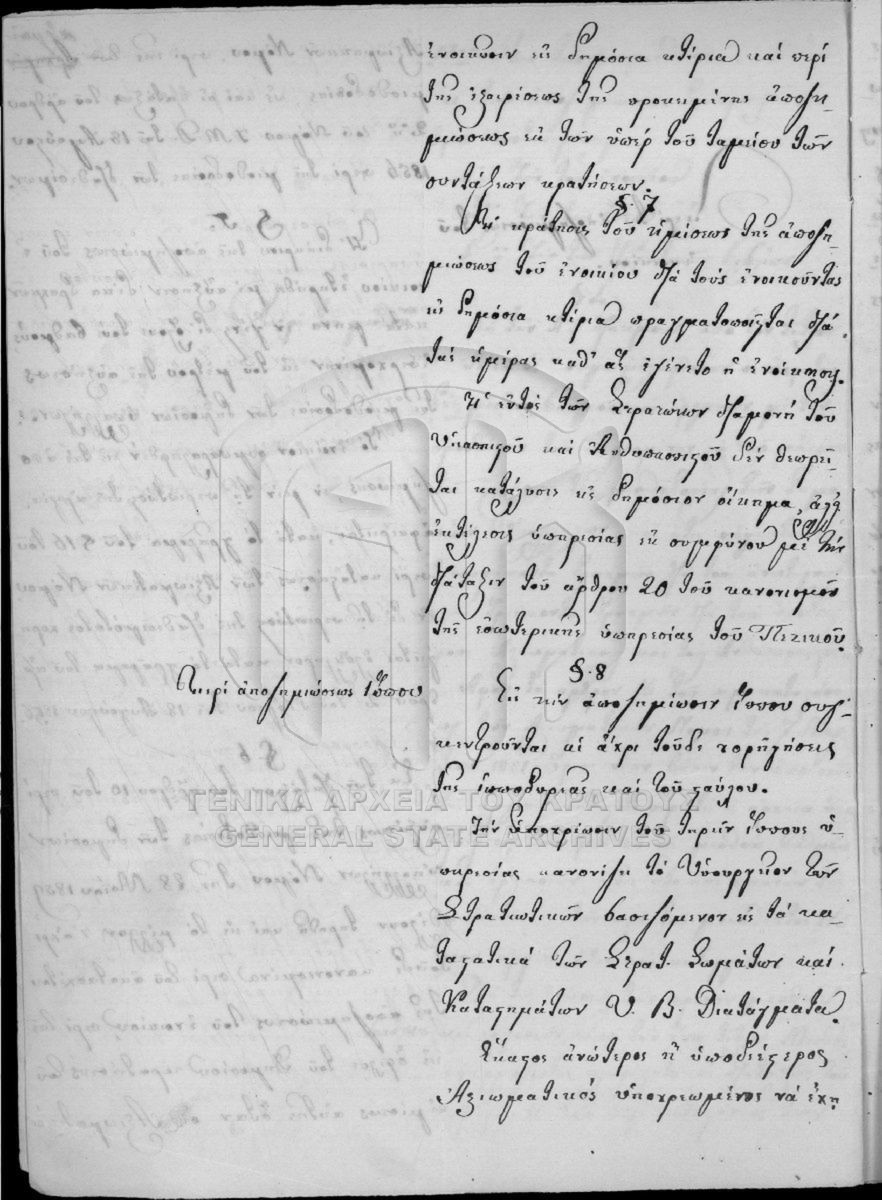 ἐνοικίωσιν εἰς δημόσια κτίρια καὶ περὶ
τῆς ἐξαιρέσεως τῆς προκειμένης ἀποζη-
μιώσεως ἐκ τῶν ὑπὲρ τοῦ ταμείου τῶν
συντάξεων κρατήσεων.
§. 7
Ἡ κράτησις τοῦ ἡμίσεως τῆς ἀποζη-
μιώσεως τοῦ ἐνοικίου διὰ τοὺς ἐνοικοῦντας
εἰς δημόσια κτίρια πραγματοποιεῖται διὰ
τὰς ἡμέρας καθ' ἃς ἐγένετο ἡ ἐνοίκησις.
Ἡ ἐντὸς τῶν Στρατώνων διαμονὴ τοῦ
Ὑπασπιστοῦ καὶ Ἀνθυπασπιστοῦ δὲν θεωρεῖ-
ται κατάλυσις εἰς δημόσιον οἴκημα, ἀλλ'
ἐκτέλεσις ὑπηρεσίας ἐκ συμφώνου μὲ τὴν
διάταξιν τοῦ ἄρθρου 20 τοῦ κανονισμοῦ
τῆς ἐσωτερικῆς ὑπηρεσίας τοῦ Πεζικοῦ.
§. 8
Περὶ ἀποζημιώσεως ἵππου
Εἰς τὴν ἀποζημίωσιν ἵππου συγ-
κεντροῦνται αἱ ἄχρι τοῦδε χορηγήσεις
τῆς ἱπποσκευῆς καὶ τοῦ σταύλου.
Τὴν ὑποχρέωσιν τοῦ τηρεῖν ἵππους ὑ-
πηρεσίας κανονίζει τὸ Ὑπουργεῖον τῶν
Στρατιωτικῶν βασιζόμενον εἰς τὰ κα-
ταστατικὰ τῶν Στρατ. Σωμάτων καὶ
Καταστημάτων Υ. Β. Διατάγματα.
Ἕκαστος ἀνώτερος ἢ ὑποδεέστερος
Ἀξιωματικὸς ὑποχρεωμένος νὰ ἔχῃ
ΓΕΝΙΚΑ ΑΡΧΕΙΑ ΤΟΥ ΚΡΑΤΟΥΣ
GENERAL STATE ARCHIVES